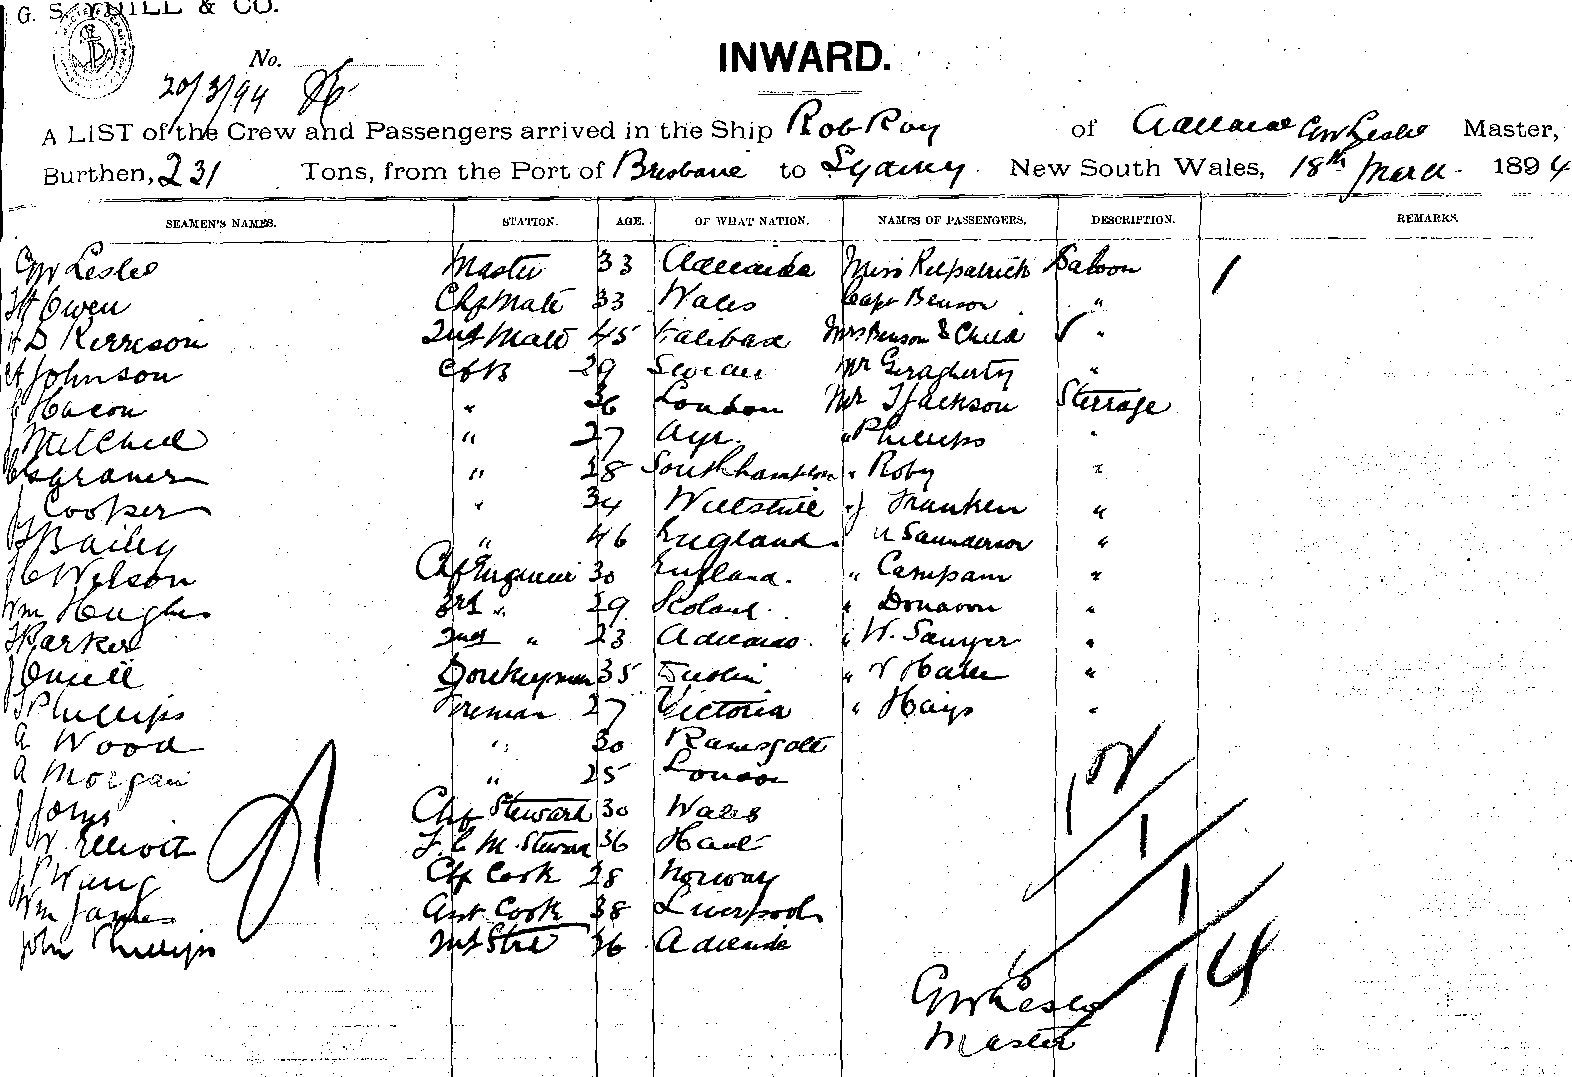 G. S. YUILL & CO.
INWARD.
No.
20/3/94
A LIST of the Crew and Passengers arrived in the Ship Rob Roy of Adelaide GW Leslie Master,
Burthen, 231 Tons, from the Port of Brisbane to Sydney New South Wales, 18th March 1894
SEAMEN'S NAMES. STATION. AGE. OF WHAT NATION. NAMES OF PASSENGERS. DESCRIPTION. REMARKS.
GW Leslie Master 33 Adelaide Miss Kilpatrick Saloon
Owen Chf Mate 33 Wales Capt Benson "
D Kerrison 2nd Mate 45 Mrs Benson & Child "
Johnson 29 Mr Geragherty "
Hacon " 36 London Mr Jackson Steerage
J Mitchell " 27 Ayr. " Phillips "
" 28 Southhampton " Roby "
J Cooper " 34 Wiltshire " J Franken "
Bailey " 46 England " Saunderson "
Wilson Chf Engineer 30 England. " Campain "
Wm Hughes 3rd " 29 " Donavon "
Parker 2nd " 23 Adelaide " W. Sawyer "
J Donkeyman 35 Dublin " "
Phillips Fireman 27 Victoria " Hays "
A Wood " 30 Ramsgate
A Morgan " 25 London
J Chf Steward 30 Wales
W. Elliott 36
Chf Cook 28 Norway
Wm James Asst Cook 38 Liverpool
John Phillips 36 Adelaide
12
1
1
14
GW Leslie
Master